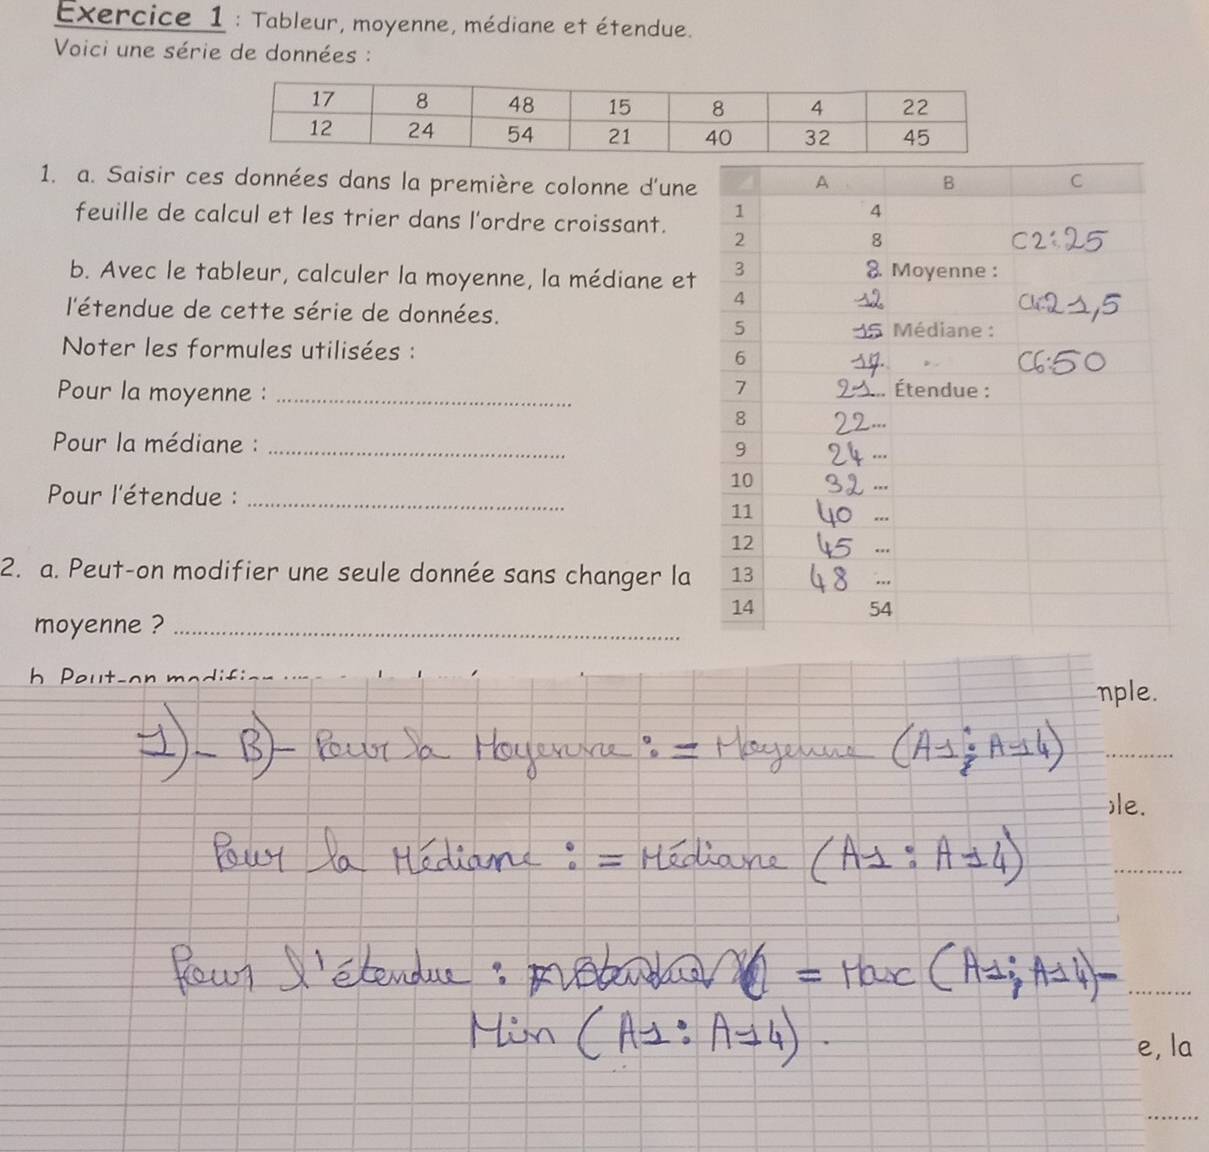 Exercice 1 : Tableur, moyenne, médiane et étendue.
Voici une série de données :
17 8 48 15 8 4 22
12 24 54 21 40 32 45
1. a. Saisir ces données dans la première colonne d'une
feuille de calcul et les trier dans l'ordre croissant.
b. Avec le tableur, calculer la moyenne, la médiane et
l'étendue de cette série de données.
Noter les formules utilisées :
Pour la moyenne :
Pour la médiane :
Pour l'étendue :
A B C
1 4
2 8 C2:25
3 8 Moyenne :
4 12 C4:21,5
5 15 Médiane :
6 17 C6:50
7 21... Étendue :
8 22...
9 24 ...
10 32 ...
11 40 ...
12 45 ...
13 48 ...
14 54
2. a. Peut-on modifier une seule donnée sans changer la
moyenne ?
b Peut-on
nple.
1) - B) - Pour la Moyenne : = Moyenne (A1 ; A14)
ple.
Pour la Médiane : = Médiane (A1 : A14)
Pour l'étendue : = Max (A1 ; A14) -
Min (A1 : A14).
e, la